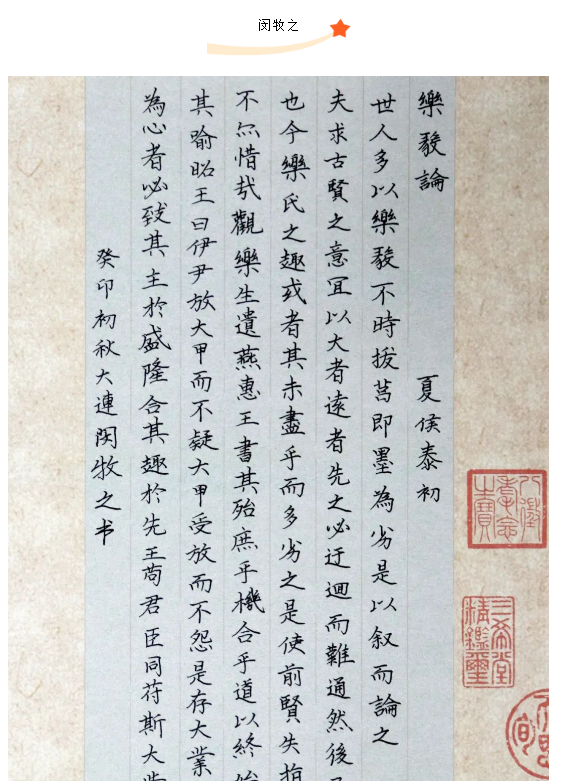 闵牧之
樂毅論 夏侯泰初
世人多以樂毅不時拔莒即墨為劣是以叙而論之
夫求古賢之意宜以大者遠者先之必迂迴而難通然後
也今樂氏之趣或者其未盡乎而多劣之是使前賢失指
不然惜哉觀樂生遺燕惠王書其殆庶乎機合乎道以終始
其喻昭王曰伊尹放大甲而不疑大甲受放而不怨是存大業
為心者必致其主於盛隆合其趣於先王苟君臣同苻斯大業
癸卯初秋大連闵牧之书
八徵耄念之寶
三希堂精鑑璽